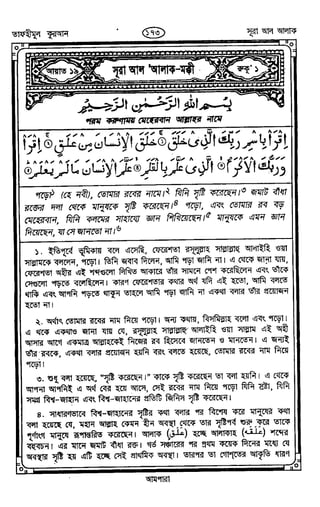 তাফহীমুল কুরআন
১৭৩
সূরা আল আলাক
আয়াত ১৯
সূরা আল 'আলাক-মক্কী
রুকূ' ১
بِسْمِ اللّٰهِ الرَّحْمٰنِ الرَّحِيْمِ
পরম করুণাময় মেহেরবান আল্লাহর নামে
اِقْرَاْ بِاسْمِ رَبِّكَ الَّذِيْ خَلَقَ ۚ خَلَقَ الْاِنْسَانَ مِنْ عَلَقٍ ۚ اِقْرَاْ
وَرَبُّكَ الْاَكْرَمُ ۙ الَّذِيْ عَلَّمَ بِالْقَلَمِ ۙ عَلَّمَ الْاِنْسَانَ مَا لَمْ يَعْلَمْ ۗ
পড়ো১ (হে নবী), তোমার রবের নামে।২ যিনি সৃষ্টি করেছেন।৩ জমাট বাঁধা
রক্তের দলা থেকে মানুষকে সৃষ্টি করেছেন।৪ পড়ো, এবং তোমার রব বড়
মেহেরবান, যিনি কলমের সাহায্যে জ্ঞান শিখিয়েছেন।৫ মানুষকে এমন জ্ঞান
দিয়েছেন, যা সে জানতো না।৬
১. ইতিপূর্বে ভূমিকায় বলে এসেছি, ফেরেশতা রসূলুল্লাহ সাল্লাল্লাহু আলাইহি ওয়া
সাল্লামকে বললেন, পড়ো। তিনি জবাব দিলেন, আমি পড়া জানি না। এ থেকে জানা যায়,
ফেরেশতা অহীর এই শব্দগুলো লিখিত আকারে তাঁর সামনে পেশ করেছিলেন এবং তাঁকে
সেগুলো পড়তে বলেছিলেন। কারণ ফেরেশতার কথার অর্থ যদি এই হতো, আমি বলতে
থাকি এবং আপনি পড়তে থাকুন তাহলে আমি পড়া জানি না একথা বলার তাঁর প্রয়োজন
হতো না।
২. অর্থাৎ তোমার রবের নাম নিয়ে পড়ো। অন্য কথায়, বিসমিল্লাহ বলো এবং পড়ো।
এ থেকে একথাও জানা যায় যে, রসূলুল্লাহ সাল্লাল্লাহু আলাইহি ওয়া সাল্লাম এই অহী
আসার আগে একমাত্র আল্লাহকেই নিজের রব হিসেবে জানতেন ও মানতেন। এ জন্যই
তাঁর রবকে, একথা বলার প্রয়োজন হয়নি বরং বলতে হয়েছে, তোমার রবের নাম নিয়ে
পড়ো।
৩. শুধু বলা হয়েছে, "সৃষ্টি করেছেন।" কাকে সৃষ্টি করেছেন তা বলা হয়নি। এ থেকে
আপনা আপনিই এ অর্থ বের হয়ে আসে, সেই রবের নাম নিয়ে পড়ো যিনি স্রষ্টা, যিনি
সমগ্র বিশ্ব-জাহান এবং বিশ্ব-জাহানের প্রতিটি জিনিস সৃষ্টি করেছেন।
৪. সাধারণভাবে বিশ্ব-জাহানের সৃষ্টির কথা বলার পর বিশেষ করে মানুষের কথা
বলা হয়েছে যে, মহান আল্লাহ কেমন হীন অবস্থা থেকে তার সৃষ্টিপর্ব শুরু করে তাকে
পূর্ণাংগ মানুষে রূপান্তরিত করেছেন। আলাক (علق) হচ্ছে আলাকাহ (علقه) শব্দের
বহুবচন। এর মানে জমাট বাঁধা রক্ত। গর্ভ সঞ্চারের পর প্রথম কয়েক দিনের মধ্যে যে
অবস্থার সৃষ্টি হয় এটি হচ্ছে সেই প্রাথমিক অবস্থা। তারপর তা গোশতের আকৃতি ধারণ
আমপারা